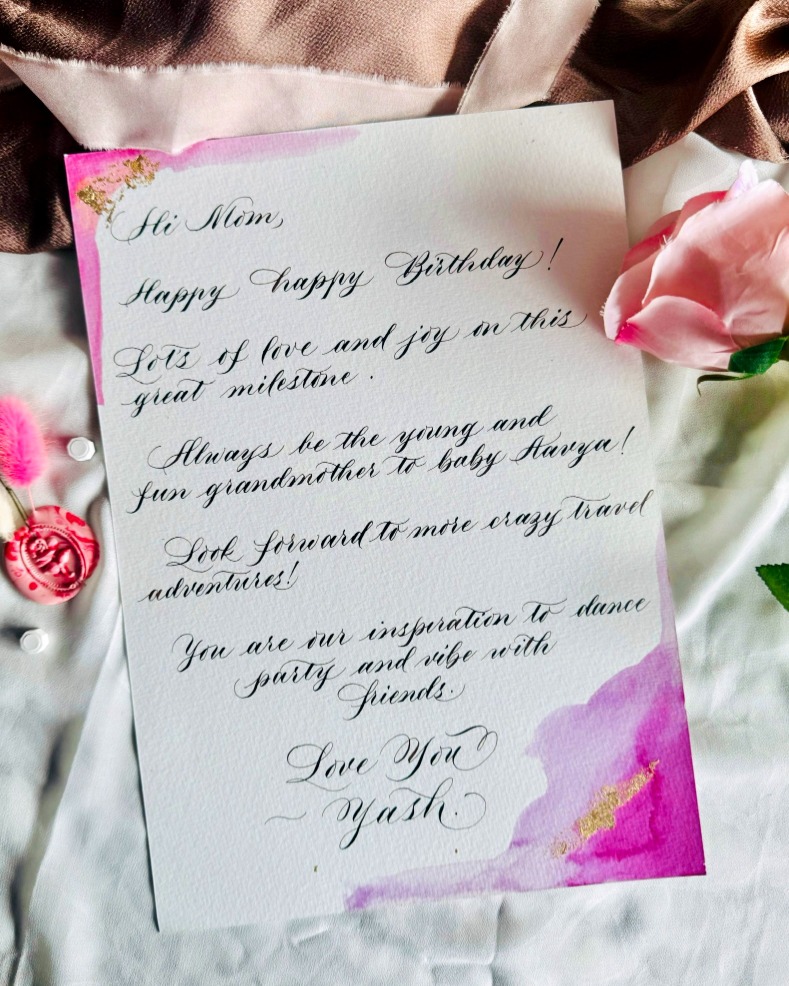 Hi Mom,
Happy happy Birthday!
Lots of love and joy on this
great milestone.
Always be the young and
fun grandmother to baby Aavya!
Look forward to more crazy travel
adventures!
You are our inspiration to dance
party and vibe with
friends.
Love You
~ Yash.